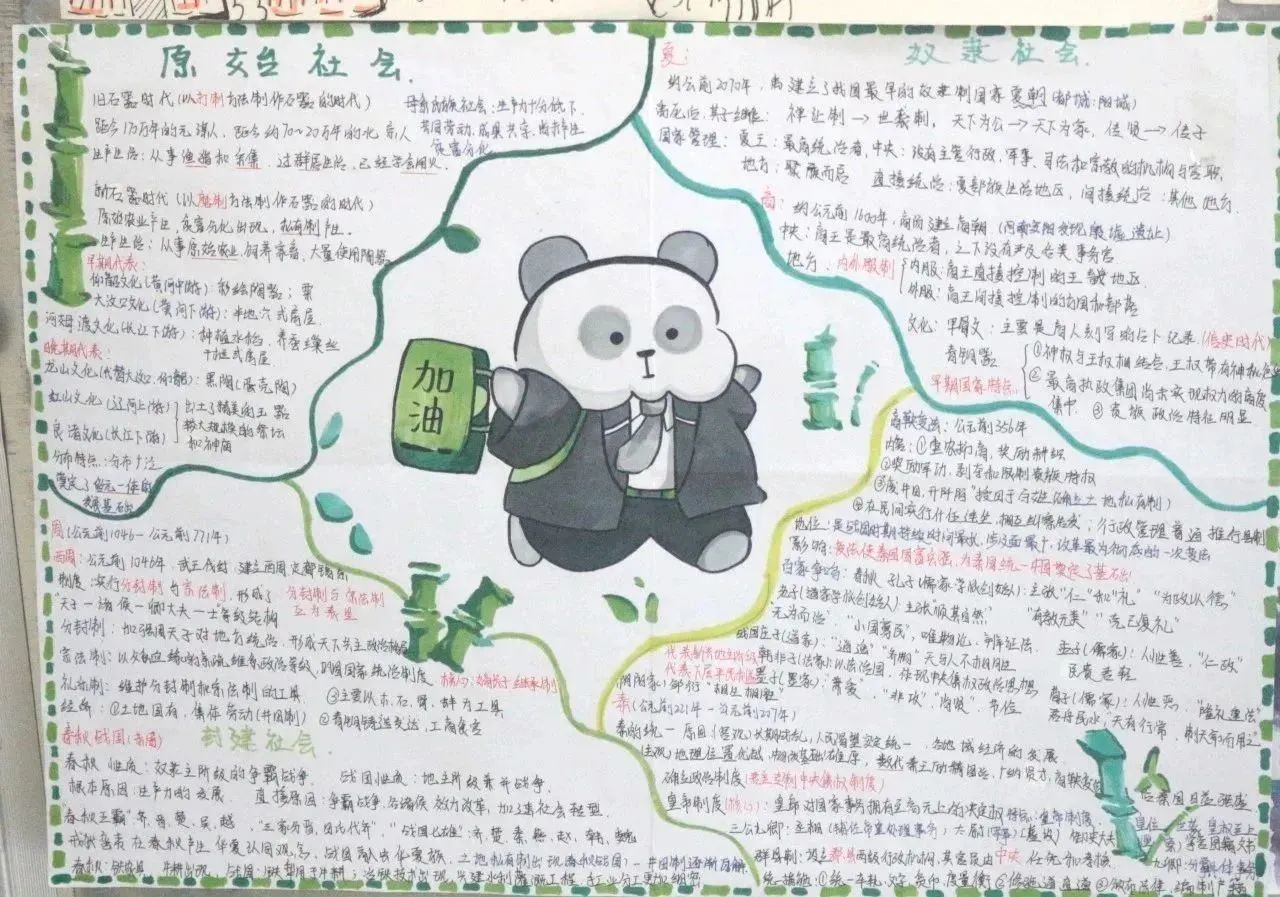 原始社会
旧石器时代(以打制方法制作石器的时代)
距今170万年的元谋人,距今约70~20万年的北京人
生产生活:从事渔猎和采集,过群居生活,已经学会用火.
母系氏族社会:生产力十分低下,
共同劳动,成果共享,
贫富分化
新石器时代(以磨制方法制作石器的时代)
原始农业产生,贫富分化出现,私有制产生.
生产生活:从事原始农业,饲养家畜、大量使用陶器
早期代表:
仰韶文化(黄河中游):彩绘陶器;粟
大汶口文化(黄河下游):半地穴式房屋.
河姆渡文化(长江下游):种植水稻、养蚕缫丝
干栏式房屋
晚期代表:
龙山文化(代替大汶口、仰韶):黑陶(蛋壳陶)
红山文化(辽河上游)
良渚文化(长江下游)
出土了精美的玉器
较大规模的祭坛
和神庙
分布特点:分布十泛
奠定了多元一体的
发展基础
奴隶社会
夏:
约公前2070年,禹建立了我国最早的奴隶制国家夏朝(都城:阳城)
禹死后,其子继位: 禅让制→世袭制,天下为公→天下为家,传贤→传子
国家管理:夏王:最高统治者,中央:设有主管行政、军事、司法和宗教的机构与官职,
地方: 直接统治:夏部族生活地区,间接统治:其他地方.
商:约公元前1600年,商汤建立商朝(河南安阳发现殷墟遗址)
中央:商王是最高统治者,之下设有尹及各类事务官
地方:内外服制
内服:商王直接控制的王畿地区
外服:商王间接控制的方国和部落
文化:甲骨文:主要是商人刻写的占卜记录(信史时代)
青铜器
早期国家特点
①神权与王权相结合,王权带有神权色
②最高执政集团尚未实现权力的高度
集中 ③贵族政治特征明显
加
油
商鞅变法:公元前356年
内容:①重农抑商,奖励耕织
②奖励军功,剥夺和限制贵族特权
③废井田,开阡陌"授田于百姓(确立土地私有制)
④在民间实行什伍连坐,相互纠察告发;行政管理普遍推行县制
地位:是战国时期持续时间最长,涉及面最广,改革最为彻底的一次变法
影响:变法使秦国国富兵强,为秦国统一中国奠定了基础!
百家争鸣:春秋 孔子(儒家学派创始人):主张"仁"和"礼" "为政以德"
老子(道家学派创始人):主张"顺其自然" "有教无类" "克己复礼"
无为而治" "小国寡民",唯物论,辩证法. 孟子(儒家):人性善,"仁政"
战国庄子(道家):"逍遥""齐物"天与人不相胜 民贵君轻
代表新兴地主阶级 韩非子(法家):以法治国,体现中央集权政治思想
代表下层平民利益 墨子(墨家):"兼爱","非攻","尚贤",节俭 荀子(儒家):人性恶,"隆礼重法"
阴阳家:邹衍"相生相胜" 君舟民水,天有行常,制天命而用之"
周(公元前1046-公元前771年)
西周:公元前1046年,武王伐纣,建立西周定都镐京
制度:实行分封制与宗法制,形成了 分封制与宗法制
互为表里
"天子一诸侯一卿大夫一士"等级结构
分封制:加强周天子对地方统治,形成天下共主政治格局
宗法制:以血缘为纽带的系统,维系政治等级,巩固国家统治制度 核心:嫡长子继承制
礼乐制:维护分封制和宗法制的工具
经济:①土地国有,集体劳动(井田制) ③主要以木、石、骨、蚌为工具
②青铜铸造发达,工商食官
春秋战国(东周)
封建社会
春秋性质:奴隶主阶级的争霸战争. 战国性质:地主阶级兼并战争.
根本原因:生产力的发展. 直接原因:争霸战争,各诸侯致力改革,加速社会转型
"春秋五霸"齐、晋、楚、吴、越, "三家分晋,田氏代齐" "战国七雄":齐、楚、秦、燕、赵、韩、魏
华夏认同观念,战国融入华夏族,土地私有制出现(春秋战国)-井田制逐渐瓦解
春秋:铁农具、牛耕出现,战国:铁犁用于牛耕;兴建水利灌溉工程,手工业分工更加细密
秦(公元前221年-公元前207年)
秦的统一原因(客观)长期战乱,人民渴望安定统一,各地域经济的发展
(主观)地理位置优越,物质基础雄厚,数代秦王励精图治,广纳贤才,商鞅变法
使秦国日益强盛
确立政治制度(君主专制中央集权制度)
皇帝制度(核心):皇帝对国家事务拥有至高无上的决定权
皇位世袭 皇权至上
三公九卿:丞相(辅佐皇帝处理事务),太尉(军事)(虚设) 御史大夫
郡县制:设立郡县两级行政机构,其官员由中央任免和考核.
统一措施:①统一车轨、文字、货币、度量衡 ②修驰道直道